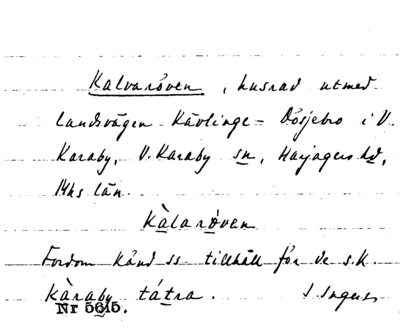 Kalvaröven, husrad utmed
landsvägen Kävlinge - Dösjebro i V.
Karaby, V. Karaby sn, Harjagers hd,
Mhs län.
kàlaröven
Fordom känd ss tillhåll för de s.k.
kàraby tátra. S. Ingers
Nr 5615.